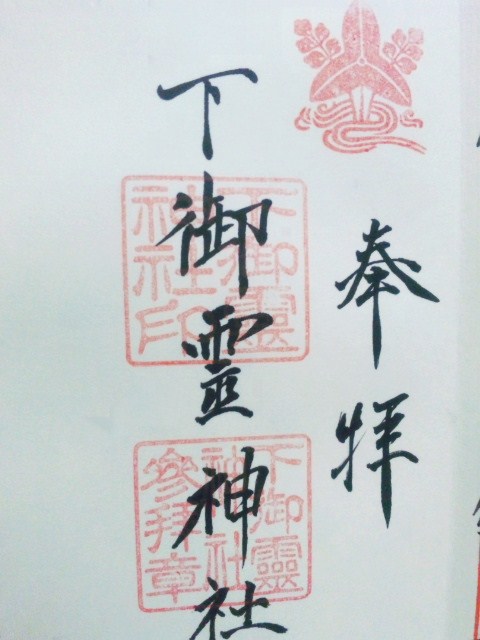 奉拝
下御靈神社
下御靈
神社印
下御靈
神社
參拜章